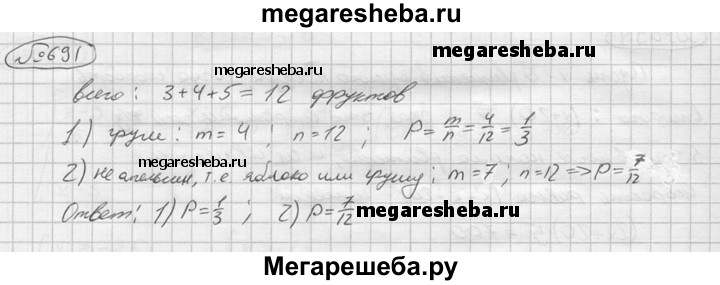 megaresheba.ru
№691
megaresheba.ru
всего: 3+4+5=12 фруктов
1) груш: m=4; n=12; P=m/n=4/12=1/3
megaresheba.ru
2) не апельсин, т.е. яблоко или грушу: m=7; n=12=>P=7/12
Ответ: 1) P=1/3; 2) P=7/12
megaresheba.ru
Мегарешеба.ру